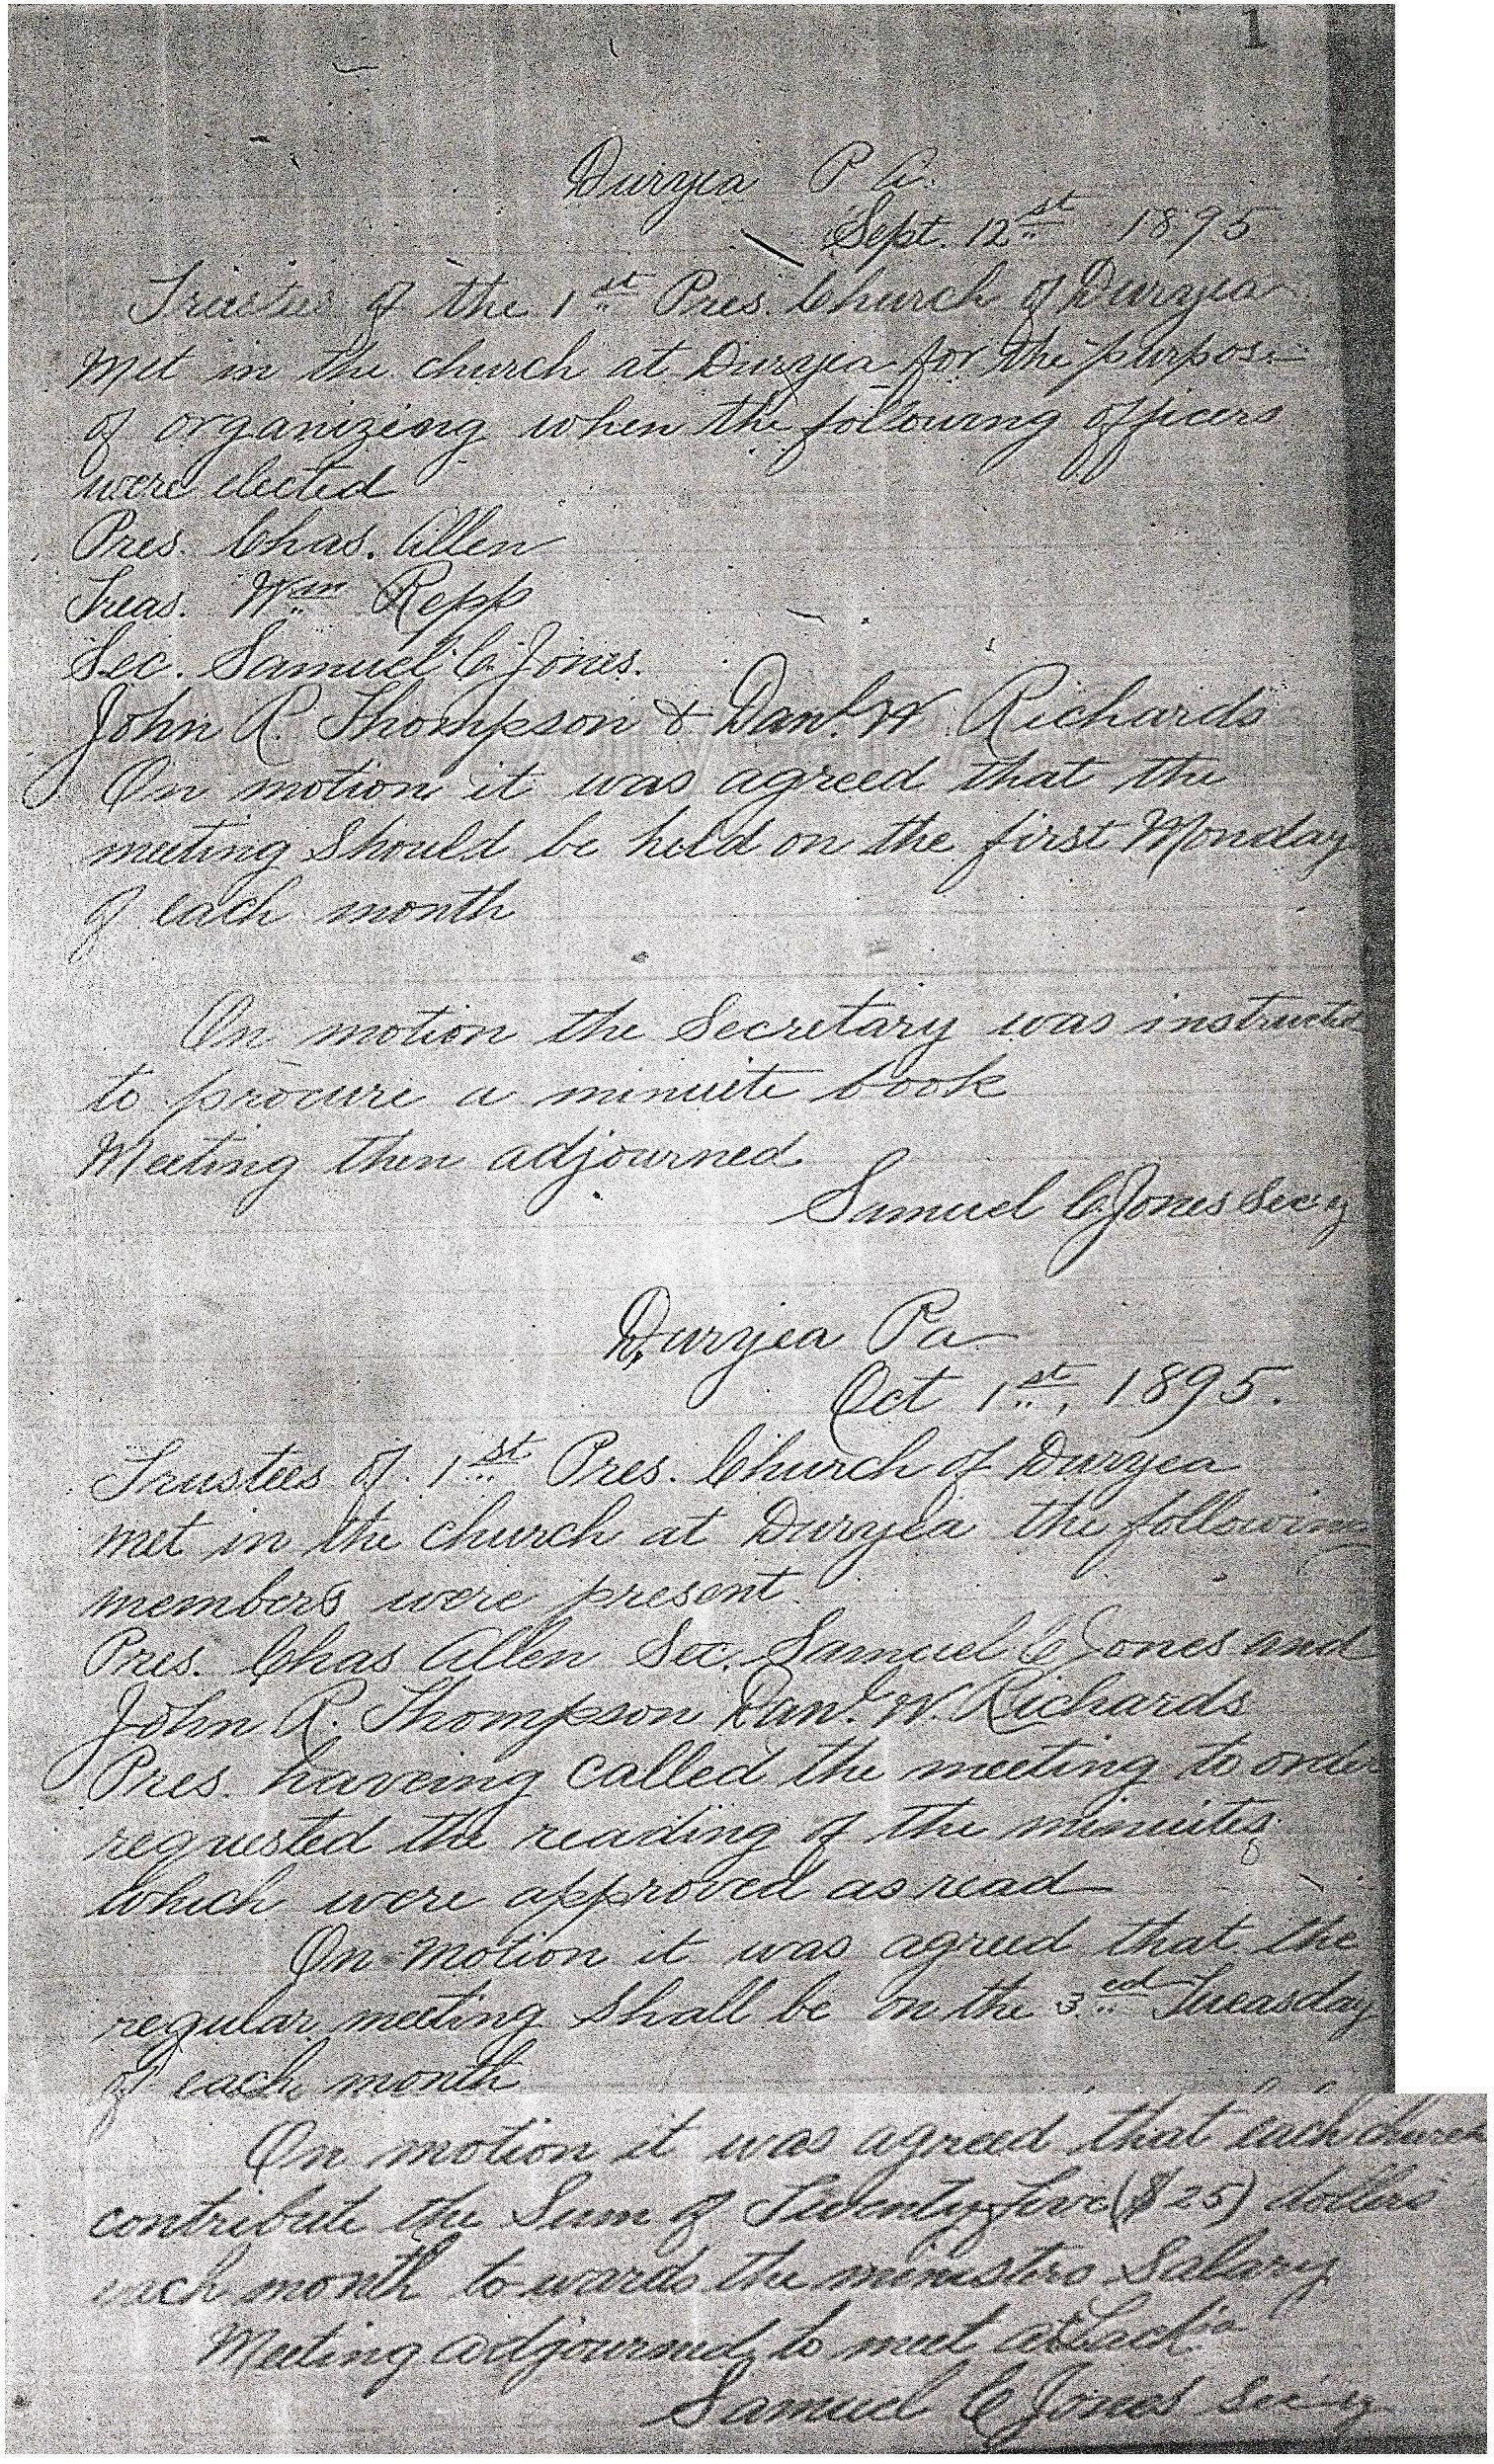 1
Duryea P a.
Sept. 12st 1895
Trustees of the 1st Pres. Church of Duryea
Met in the church at Duryea for the purpose
of organizeing when the following officers
were elected
Pres. Chas. Allen
Treas. Wm Repp
Sec. Samuel C. Jones.
John R. Thompson & Danl. W. Richards
On motion it was agreed that the
meeting should be held on the first Monday
of each month
On motion the Secretary was instructed
to procure a minuite book
Meeting then adjourned
Samuel C. Jones Secy
Duryea Pa
Oct 1st, 1895.
Trustees of 1st Pres. Church of Duryea
met in the church at Duryea the following
members were present.
Pres. Chas Allen Sec. Samuel C Jones and
John R. Thompson Danl. W. Richards
Pres. haveing called the meeting to order
requested the reading of the minuites
which were approved as read
On motion it was agreed that the
regular meeting shall be on the 3ed Tueasday
of each month
On motion it was agreed that each church
contribute the Sum of Twenty five ($25) dollers
each month to wards the ministers Salary
Meeting adjourned to meet at
Samuel C Jones Secy